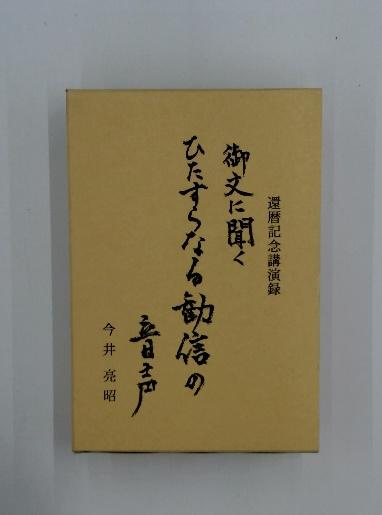 還暦記念講演録
御文に聞く
ひたすらなる勧信の
音声
今井亮昭